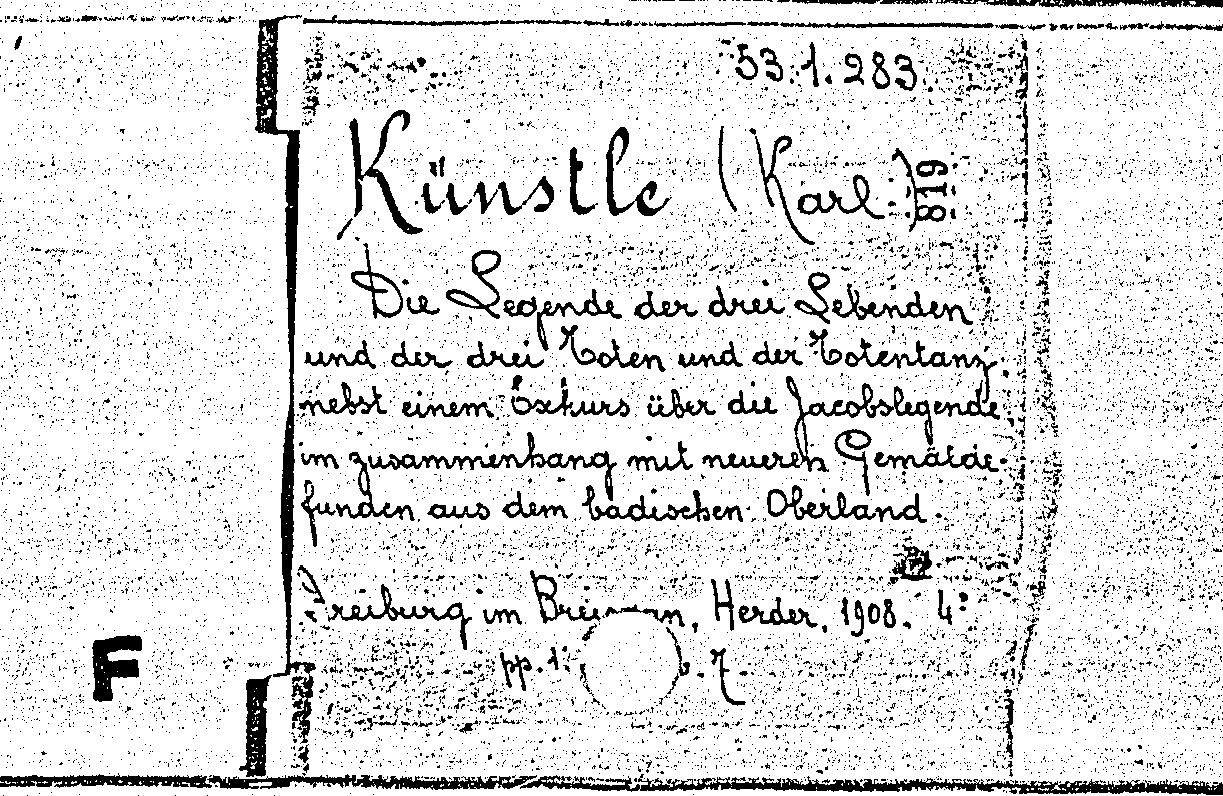 53.1.283.
Künstle (Karl.)
819
Die Legende der drei Lebenden
und der drei Toten und der Totentanz.
nebst einem Exkurs über die Jacobslegende
im zusammenhang mit neueren Gemälde-
funden aus dem badischen Oberland.
Freiburg im, Herder, 1908. 4:
pp. 1:
F